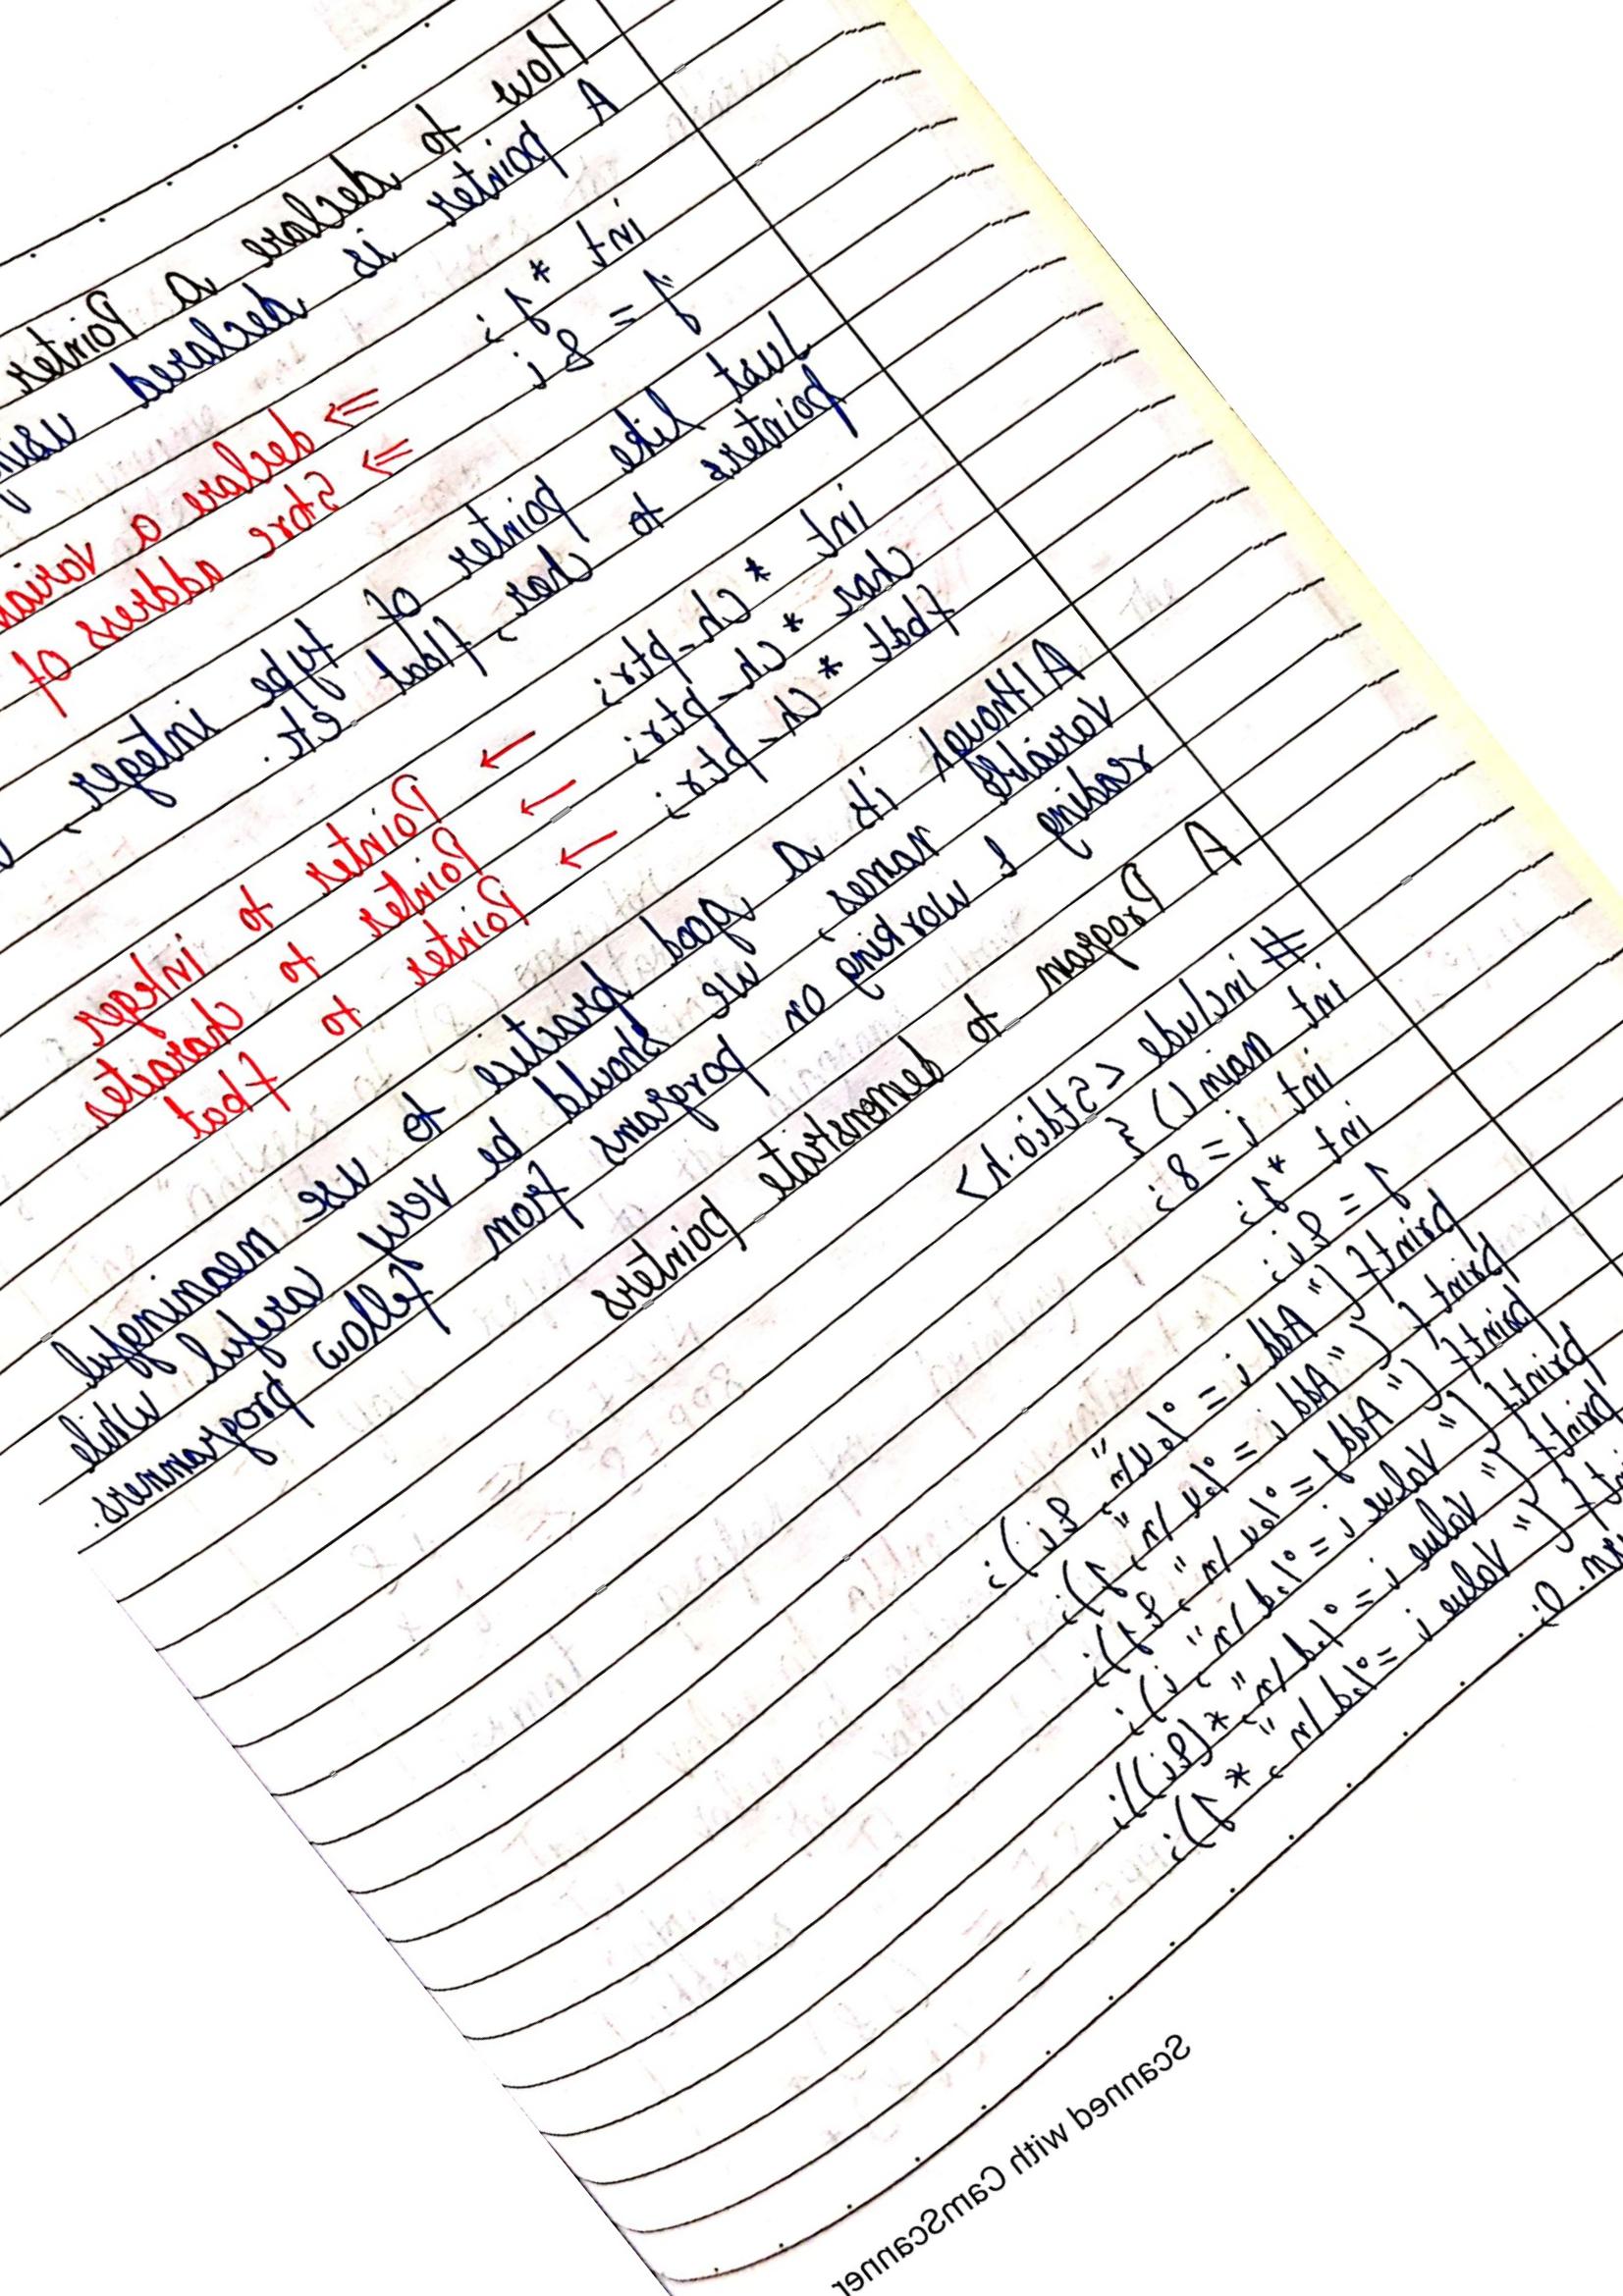 How to declare a Pointer
A pointer is declared
int *j; ⇒ declare a
j = &i ⇒ Store address of
Just like pointer of type integer,
pointers to char, float etc.
int * Ch_ptr; → Pointer to integer
char * Ch_ptr; → Pointer to charater
float * Ch_ptr; → Pointer to float
Althougt its a good pratice to use meaningful
variable names, we should be very careful while
reading & working on porgrams from fellow programmers.
A Program to demonstrate pointers
# include <stdio.h>
int main () {
int i = 8;
int *j;
j = &i;
printf ("Add i = %u/n", &i);
printf ("Add i = %u /n", j);
printf ("Add j = %u /n", &j);
printf (" value i = %d /n", i);
printf (" value i = %d /n", *(&i));
(" value i = %d /n", * j);
0;
Scanned with CamScanner